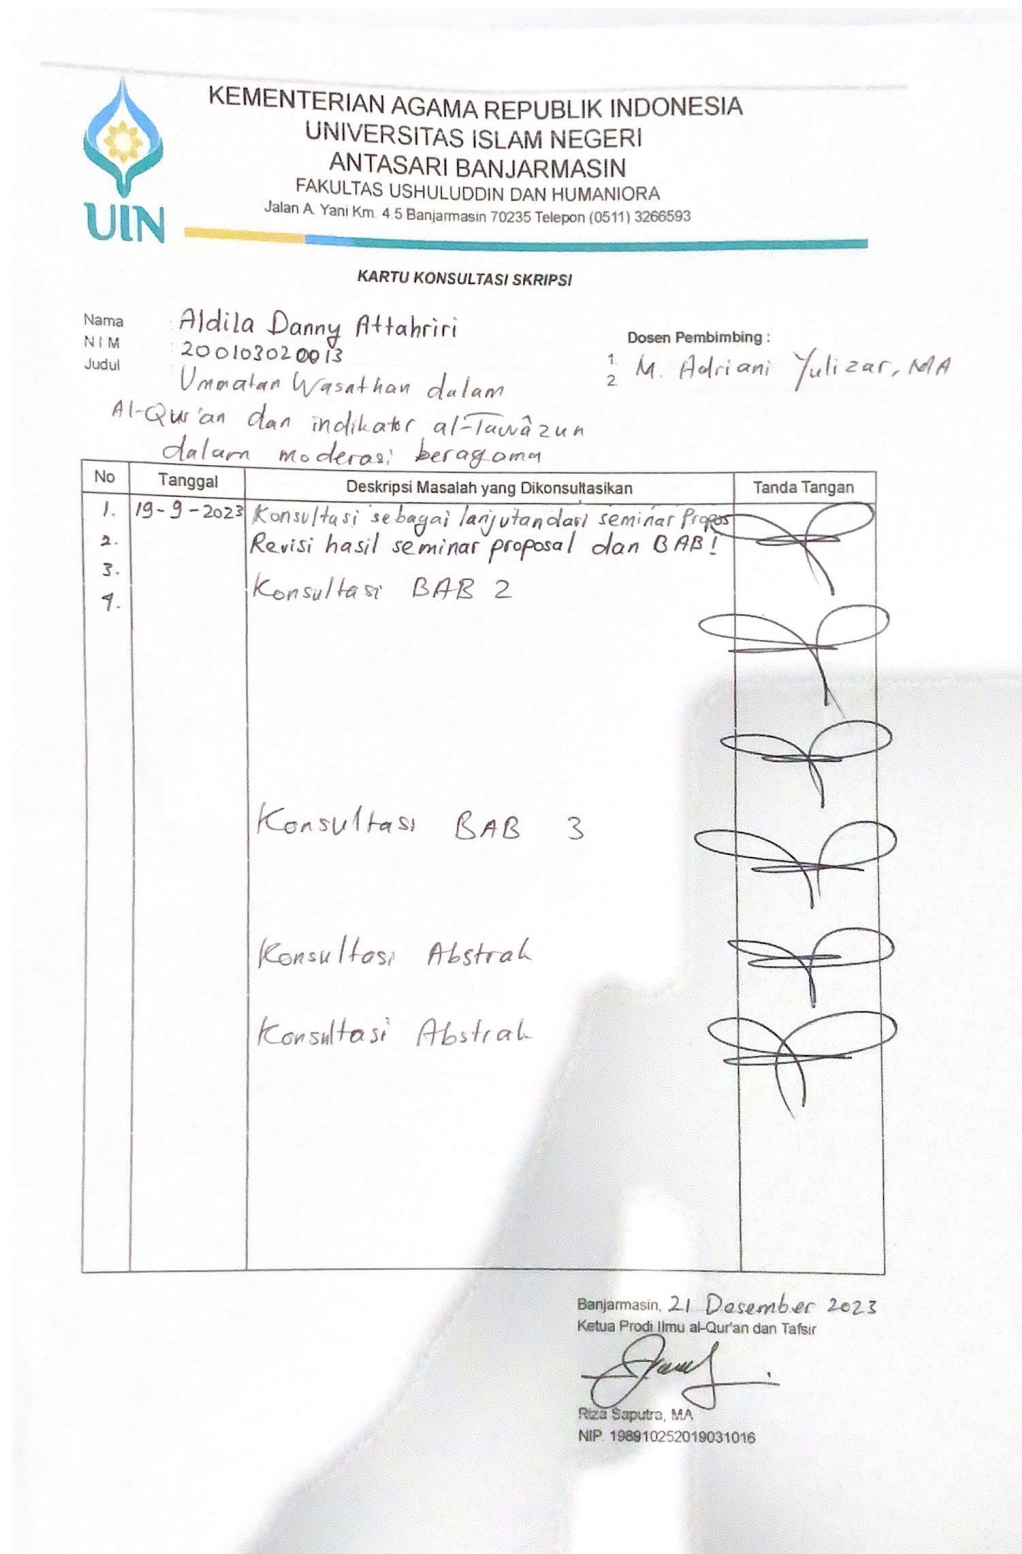 KEMENTERIAN AGAMA REPUBLIK INDONESIA
UNIVERSITAS ISLAM NEGERI
ANTASARI BANJARMASIN
FAKULTAS USHULUDDIN DAN HUMANIORA
Jalan A. Yani Km. 4.5 Banjarmasin 70235 Telepon (0511) 3266593
UIN
KARTU KONSULTASI SKRIPSI
Nama : Aldila Danny Attahriri
NIM : 200103020013
Judul : Ummatan Wasathan dalam
Al-Qur'an dan indikator al-Tawâzun
dalam moderasi beragama
Dosen Pembimbing :
1. M. Adriani Yulizar, MA
2.
No Tanggal Deskripsi Masalah yang Dikonsultasikan Tanda Tangan
1. 19-9-2023 Konsultasi sebagai lanjutan dari seminar Propos
2. Revisi hasil seminar proposal dan BAB 1
3.
4. Konsultasi BAB 2
Konsultasi BAB 3
Konsultasi Abstrak
Konsultasi Abstrak
Banjarmasin, 21 Desember 2023
Ketua Prodi Ilmu al-Qur'an dan Tafsir
Riza Saputra, MA
NIP. 198910252019031016